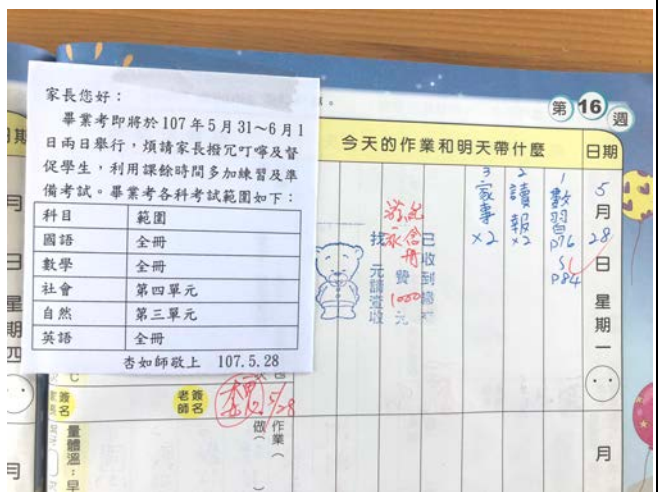 家長您好：
畢業考即將於107年5月31～6月1
日兩日舉行，煩請家長撥冗叮嚀及督
促學生，利用課餘時間多加練習及準
備考試。畢業考各科考試範圍如下：
科目 範圍
國語 全冊
數學 全冊
社會 第四單元
自然 第三單元
英語 全冊
杏如師敬上 107.5.28
第16週
今天的作業和明天帶什麼
日期
5月28日星期一
1 數習
P76
P84
2 讀報
x2
3 家事
x2
已收到
費1000元
找 元請查收
老師簽名
5/28
簽名
作業（
做（
量體溫：早
月
期四